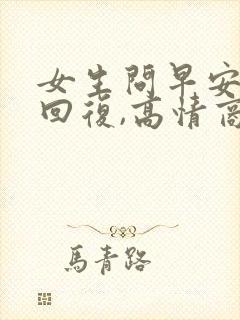 女生問早安
回復,高情商
馬青路